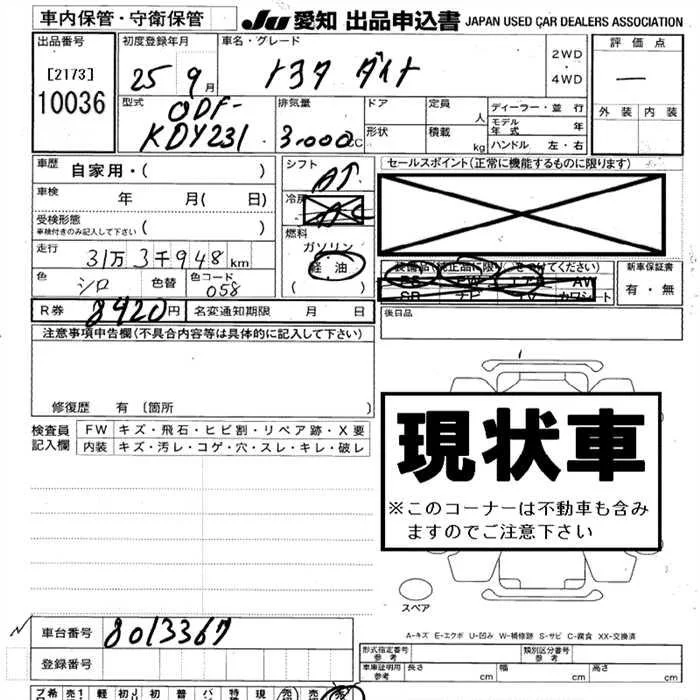 車内保管・守衛保管
JU 愛知 出品申込書 JAPAN USED CAR DEALERS ASSOCIATION
出品番号 初度登録年月 車名・グレード 2WD・4WD 評価点
[2173] 25 9月 トヨタ ダイナ —
10036
型式 排気量 ドア 定員 人 ディーラー・並 行 外装 内装
ODF- 形状 積載 kg モデル年式 年
KDY231 3.000cc ハンドル 左・右
車歴 自家用・( ) シフト AT セールスポイント(正常に機能するものに限ります)
車検 年 月( 日) 冷房
受検形態 燃料
車検付きのみ記入して下さい ガソリン
走行 31万3千948km 軽油
色 シロ 色替 色コード 058 ( )
装備品(純正品に限り)○をつけてください 新車保証書
PS PW エアB AW 有・無
SR ナビ TV カワシート
R券 8420円 名変通知期限 月 日 後日品
注意事項申告欄(不具合内容等は具体的に記入して下さい)
修復歴 有〔箇所 〕
検査員記入欄 FW キズ・飛石・ヒビ割・リペア跡・X要
内装 キズ・汚レ・コゲ・穴・スレ・キレ・破レ
現状車
※このコーナーは不動車も含み
ますのでご注意下さい
スペア
A-キズ E-エクボ U-凹み W-補修跡 S-サビ C-腐食 XX-交換済
車台番号 8013367
登録番号
形式指定番号 参考 類別区分番号 参考
車庫証明用 参考 長さ cm 幅 cm 高さ cm